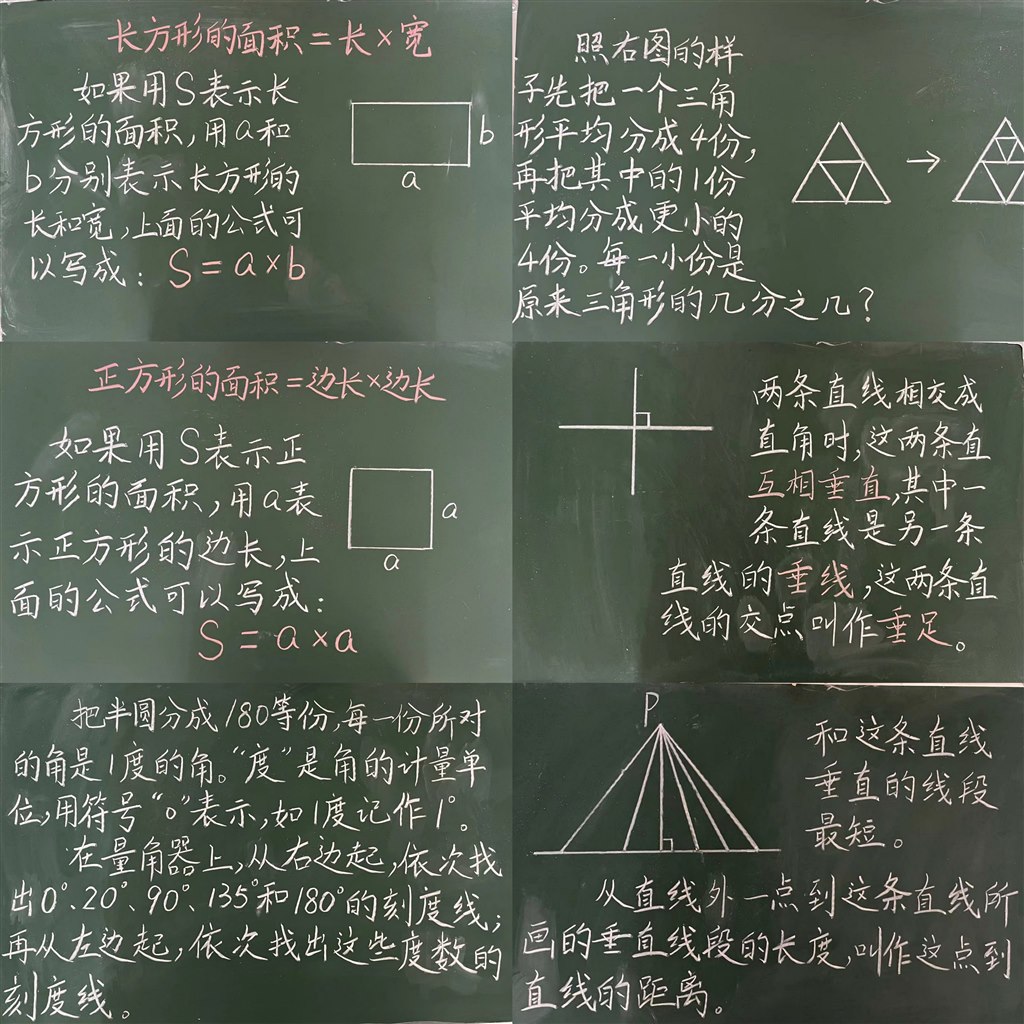 长方形的面积=长×宽
如果用S表示长
方形的面积,用a和
b分别表示长方形的
长和宽,上面的公式可
以写成:S=a×b
b
a
照右图的样
子先把一个三角
形平均分成4份,
再把其中的1份
平均分成更小的
4份。每一小份是
原来三角形的几分之几?
→
正方形的面积=边长×边长
如果用S表示正
方形的面积,用a表
示正方形的边长,上
面的公式可以写成:
S=a×a
a
a
两条直线相交成
直角时,这两条直
互相垂直,其中一
条直线是另一条
直线的垂线,这两条直
线的交点叫作垂足。
把半圆分成180等份,每一份所对
的角是1度的角。“度”是角的计量单
位,用符号“°”表示,如1度记作1°。
在量角器上,从右边起,依次找
出0°、20°、90°、135°和180°的刻度线;
再从左边起,依次找出这些度数的
刻度线。
P
和这条直线
垂直的线段
最短。
从直线外一点到这条直线所
画的垂直线段的长度,叫作这点到
直线的距离。